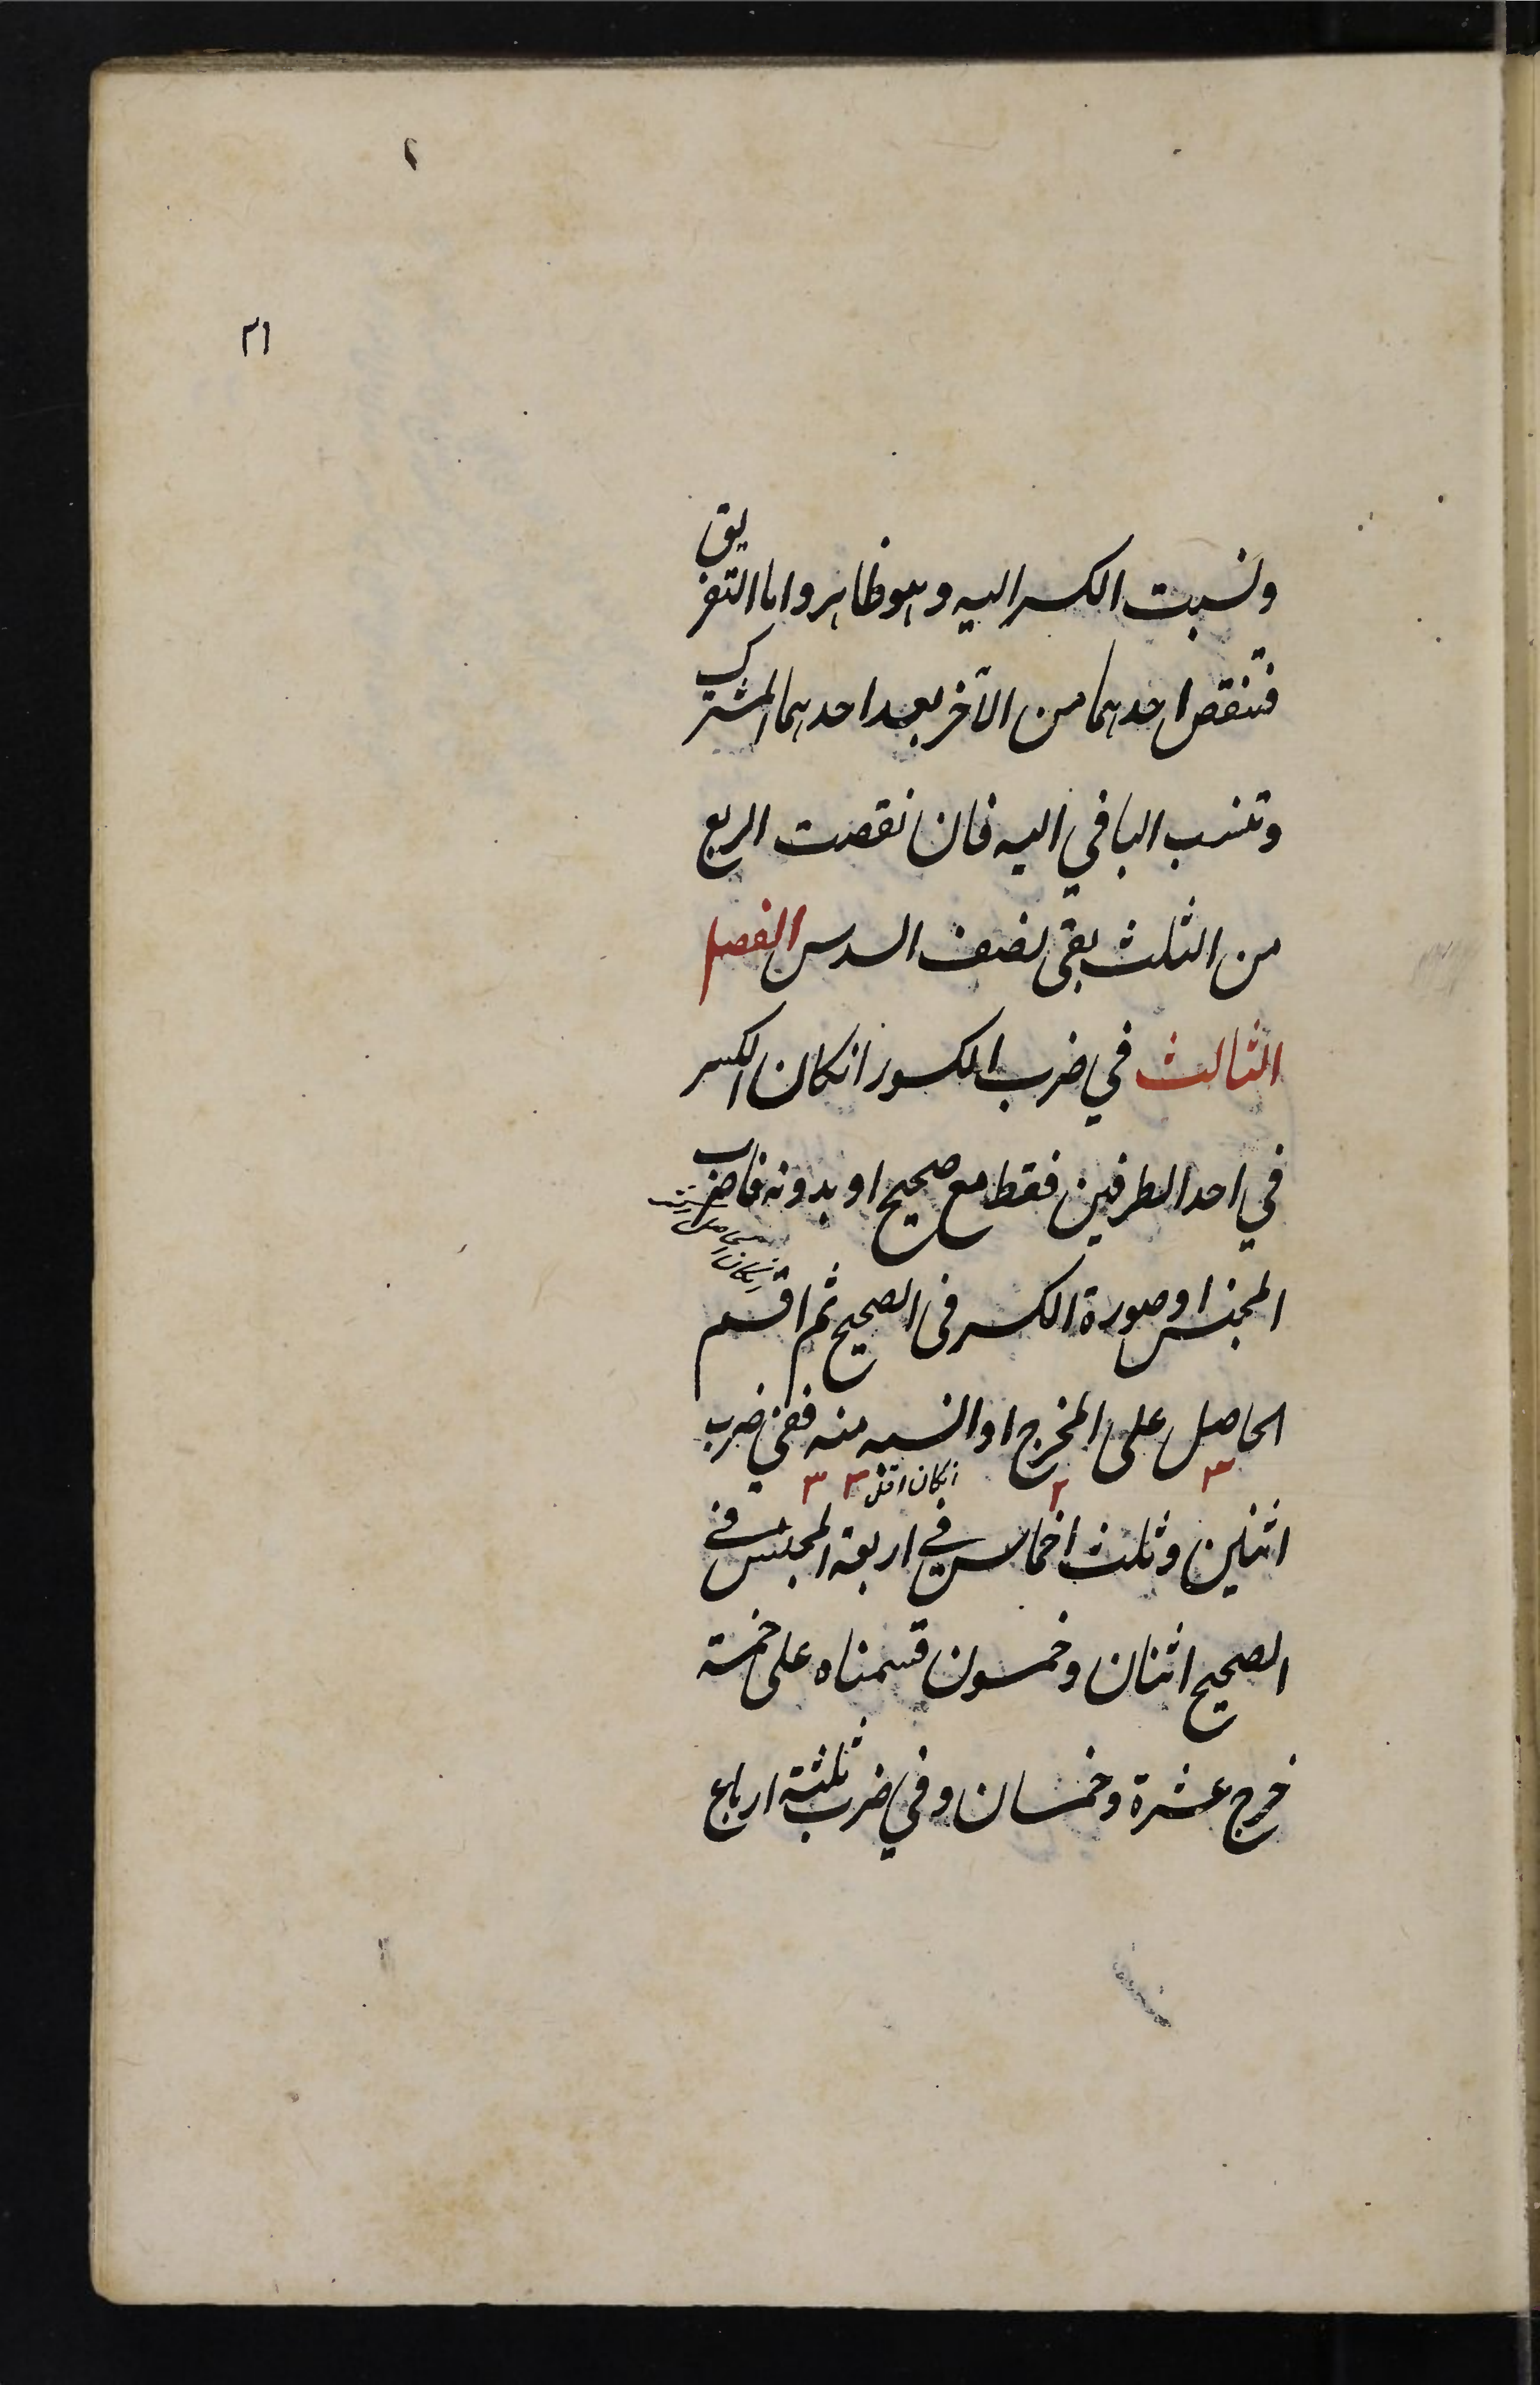 ٢١
ونسبت الكسر اليه وهو ظاهر واما التفريق
فتنقص احدهما من الآخر بعد احدهما المشترك
وتنسب الباقي اليه فان نقصت الربع
من الثلث بقى نصف السدس الفصل
الثالث في ضرب الكسور انكان الكسر
في احد الطرفين فقط مع صحيح او بدونه فاضرب
المجنس او صورة الكسر في الصحيح ثم اقسم
الحاصل على المخرج او انسبه منه ففي ضرب
انكان اقل
اثنين وثلث اخماس في اربعة المجنس في
الصحيح اثنان وخمسون قسمناه على خمسة
خرج عشرة وخمسان وفي ضرب ثلثة ارباع